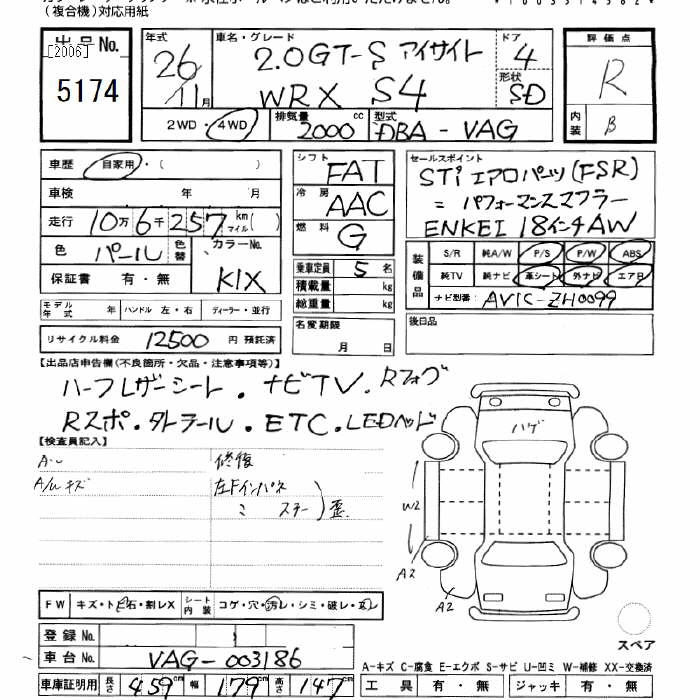 (複合機)対応用紙
出品No. [2006] 5174
年式 26 11月
車名・グレード 2.0GT-S アイサイト WRX S4
ドア 4
形状 SD
評価点 R
内装 B
2WD・4WD
排気量 2000 cc
型式 DBA-VAG
車歴 自家用・( )
車検 年 月
走行 10万6千257 km マイル( )
色 パール
色替
カラーNo. K1X
保証書 有・無
シフト FAT
冷房 AAC
燃料 G
乗車定員 5名
積載量 kg
総重量 kg
セールスポイント
STi エアロパーツ(FSR)
= パフォーマンスマフラー
ENKEI 18インチAW
装備品
S/R 純A/W P/S P/W ABS
純TV 純ナビ 革シート 外ナビ エアB
ナビ型番 AVIC-ZH0099
モデル年式 年 ハンドル 左・右 ディーラー・並行
リサイクル料金 12500 円 預託済
名変期限 月 日
後日品
【出品店申告欄(不良箇所・欠品・注意事項等)】
ハーフレザーシート．ナビTV．Rフォグ
Rスポ．タトラール．ETC．LEDヘッド
【検査員記入】
A/Wキズ
修復
左Fインパネ
ミ ステー 歪
ハゲ
W2
A2
A2
FW キズ・トビ石・割レX
シート内装 コゲ・穴・汚レ・シミ・破レ・スレ
登録No.
車台No. VAG-003186
車庫証明用 長さ 459cm 幅 179cm 高さ 147cm
スペア
A-キズ C-腐食 E-エクボ S-サビ U-凹ミ W-補修 XX-交換済
工具 有・無 ジャッキ 有・無